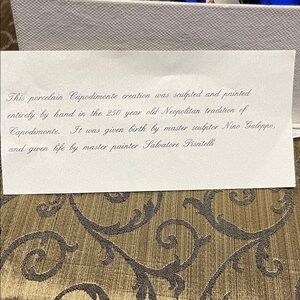 This porcelain Capodimonte creation was sculpted and painted
entirely by hand in the 250 year old Neopolitan tradition of
Capodimonte. It was given birth by master sculptor Nino Galoppo,
and given life by master painter Salvatore Piscitelli